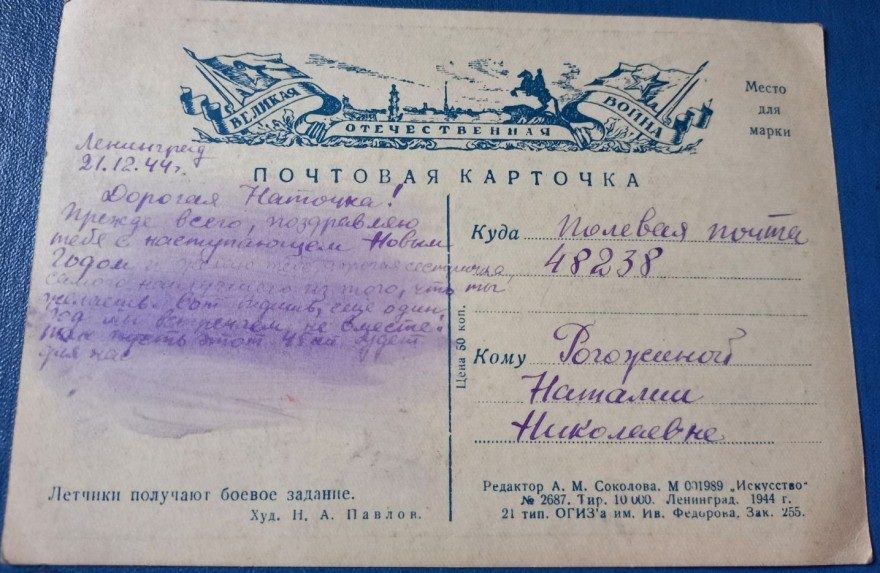 ВЕЛИКАЯ
ОТЕЧЕСТВЕННАЯ
ВОЙНА
Место
для
марки
ПОЧТОВАЯ КАРТОЧКА
Ленинград
21.12.44г.
Дорогая Наточка!
Прежде всего, поздравляю
тебя с наступающим Новым
Годом и желаю тебе дорогая сестричка
самого наилучшего из того, что ты
желаешь. Вот видишь, еще один
год мы встречаем не вместе!
пусть этот 45й будет
для нас
Куда Полевая почта
48238
Кому Рогожиной
Наталии
Николаевне
Цена 50 коп.
Летчики получают боевое задание.
Худ. Н. А. Павлов.
Редактор А. М. Соколова. М 001989 „Искусство"
№ 2687. Тир. 10 000. Ленинград. 1944 г.
21 тип. ОГИЗ'а им. Ив. Федорова, Зак. 255.